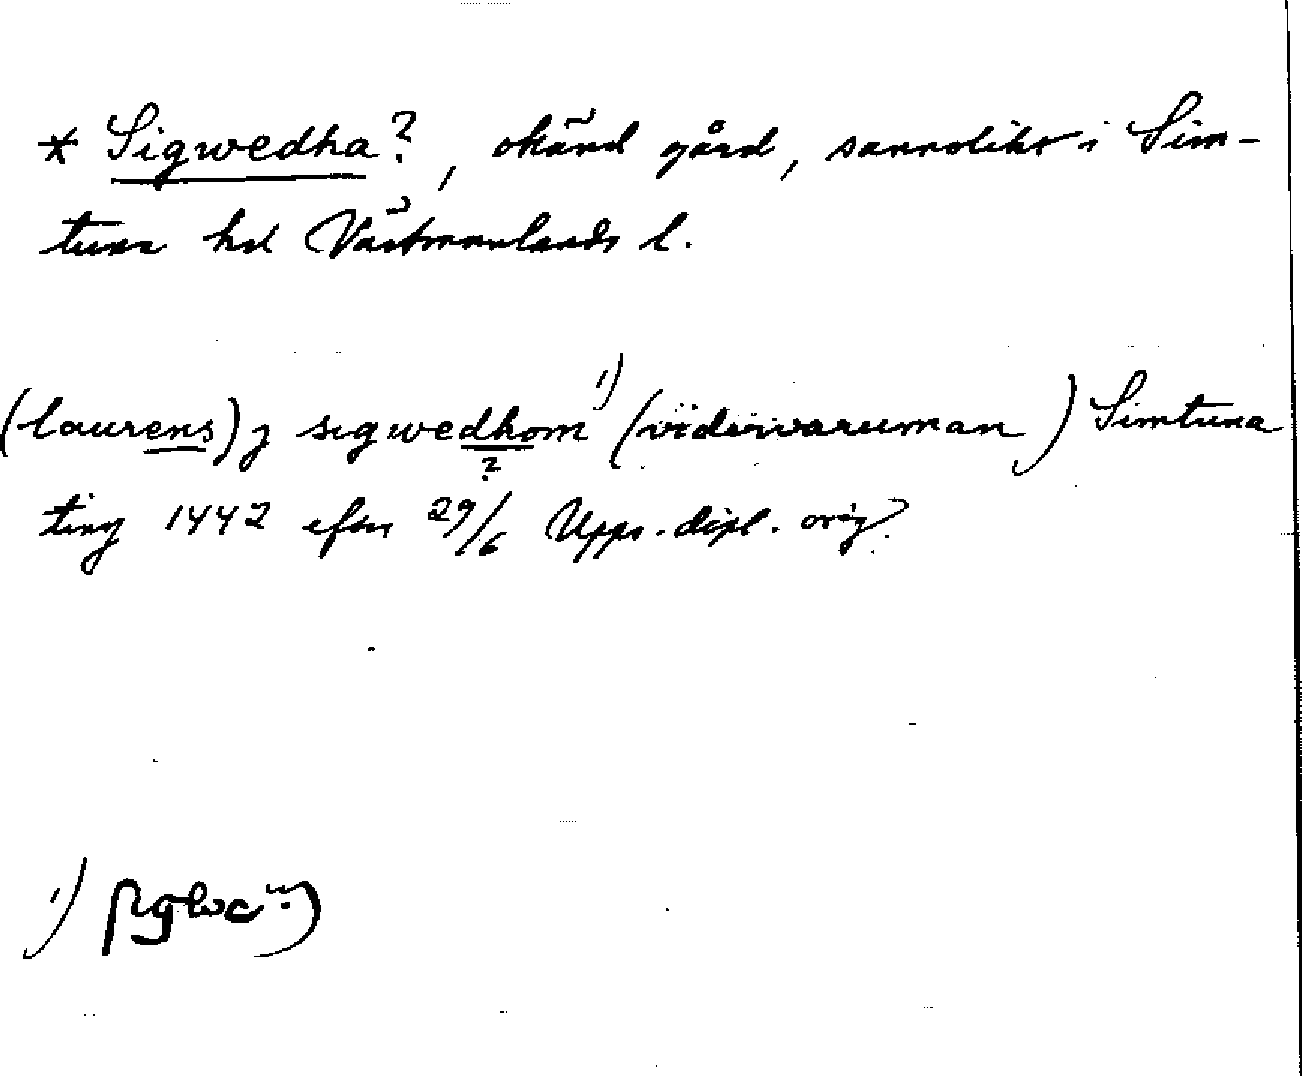 * Sigwedha?, okänd gård, sannolikt i Sim-
tuna hd Västmanlands l.
(laurens) j sigwedhom 1) (vidervaruman) Simtuna
?
ting 1442 efter 29/6 Upps. dipl. orig.
1)